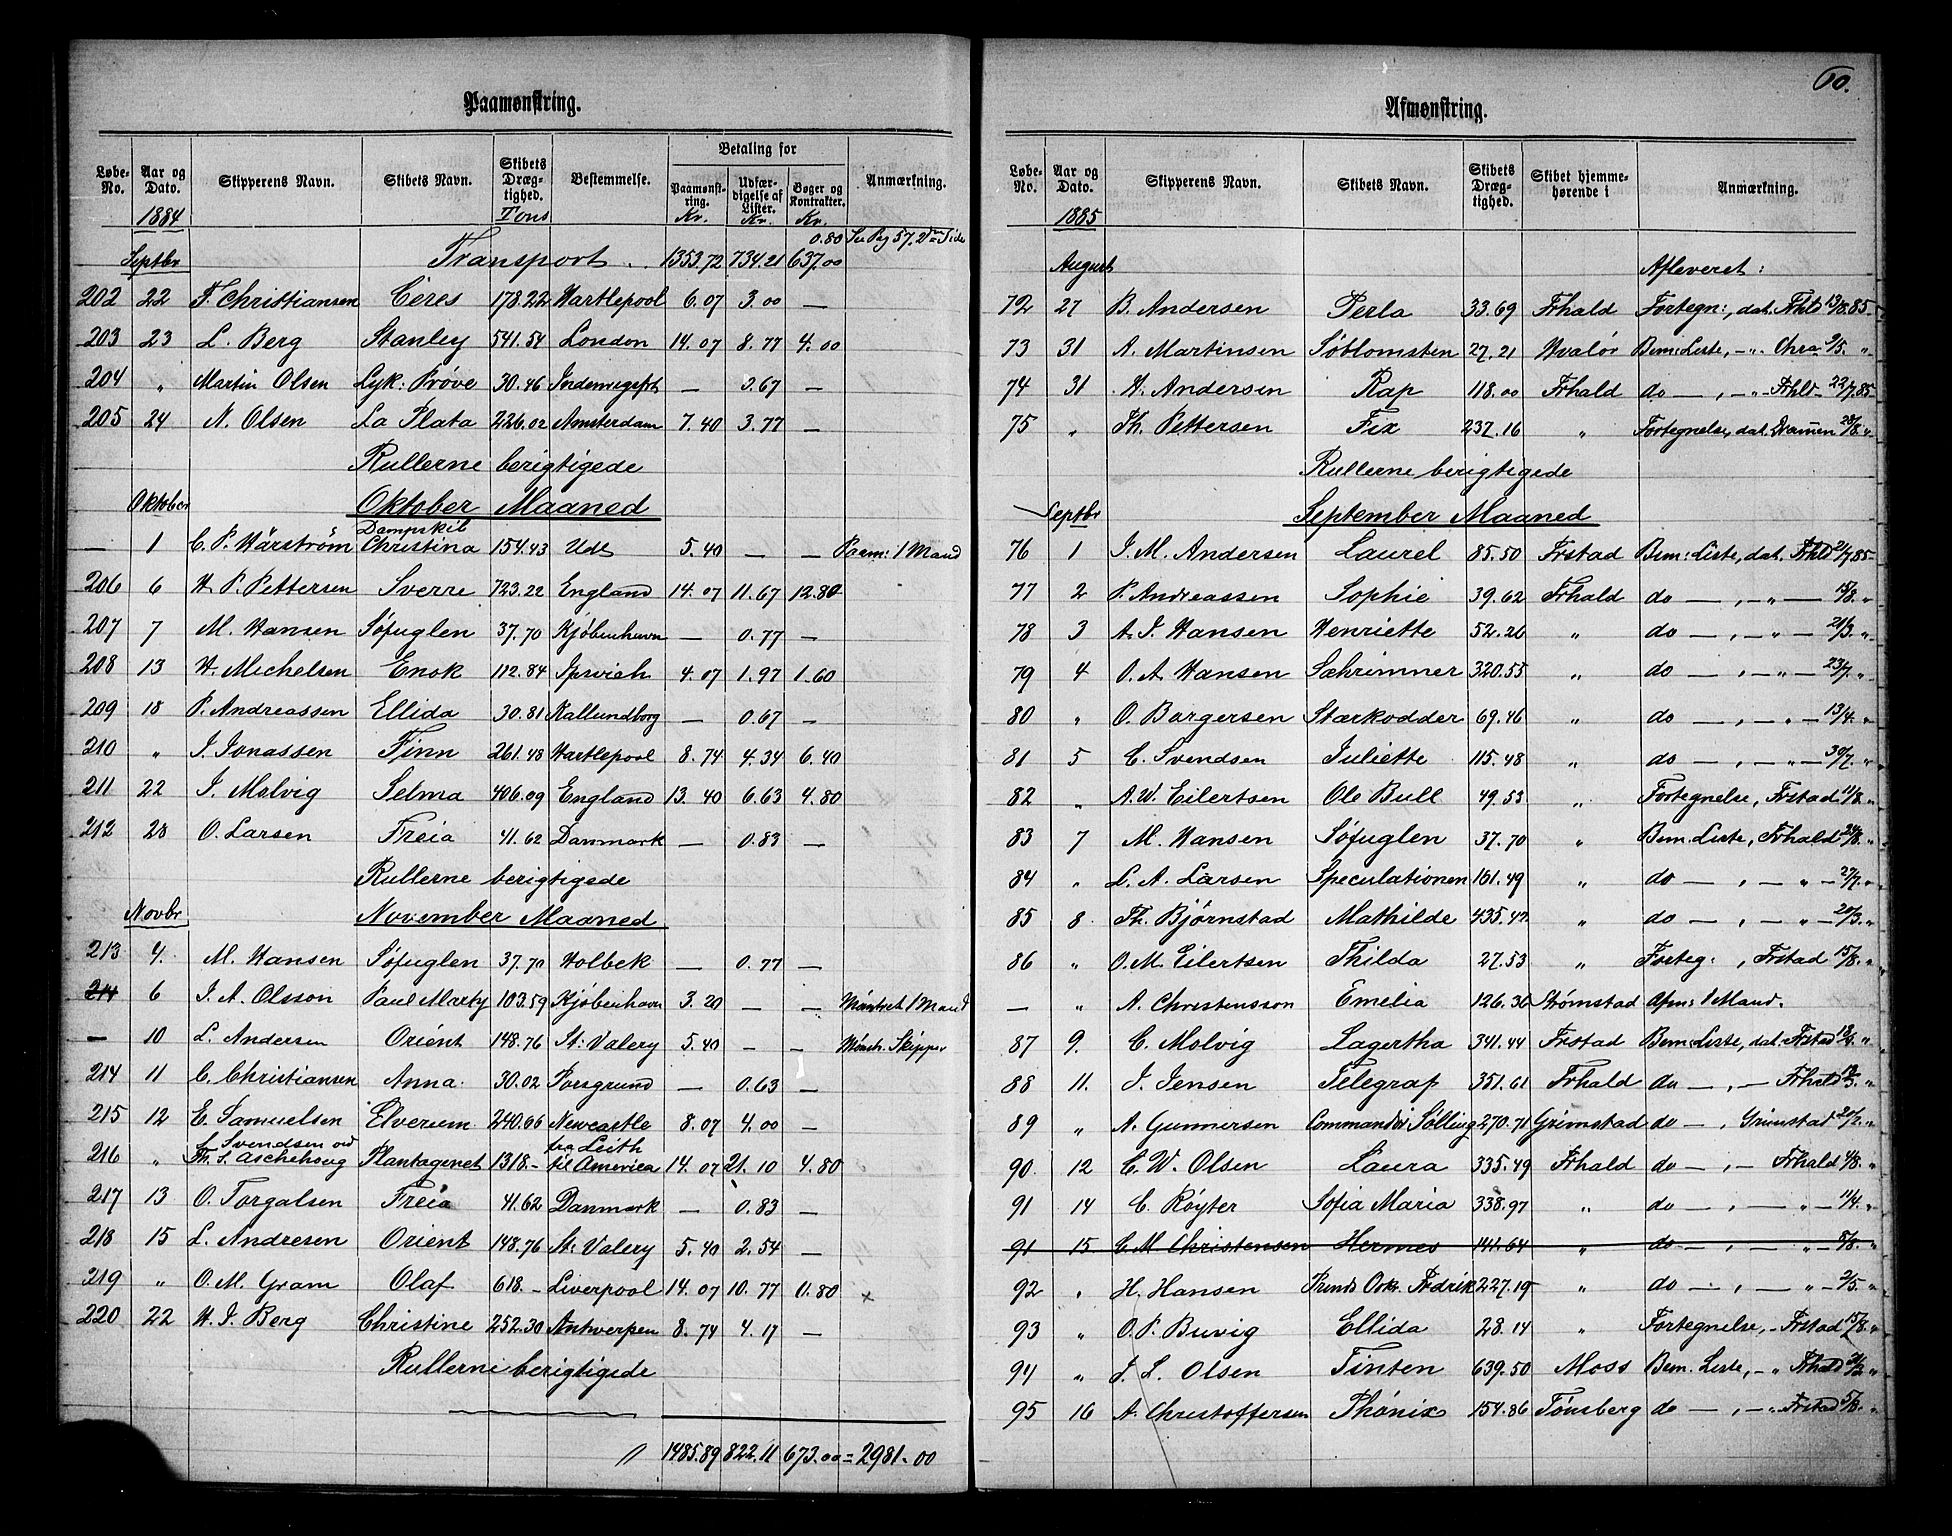 60.
Paamønstring.
Løbe-No. Aar og Dato. Skipperens Navn. Skibets Navn. Skibets Dræg-tighed. Bestemmelse. Betaling for Paamønst-ring. Udfær-digelse af Lister. Bøger og Kontrakter. Anmærkning.
1884 Tons Kr. Kr. Kr.
0.80 See Pag 57, 2den Side
Septbr Transport . . 1353.72 734.21 637.00
202 22 F. Christiansen Ceres 178.22 Hartlepool 6.07 3.00 —
203 23 L. Berg Stanley 541.54 London 14.07 8.77 4.00
204 " Martin Olsen Lyk: Prøve 30.46 Indenrigsfrt — 0.67 —
205 24 N. Olsen La Plata 226.02 Amsterdam 7.40 3.77 —
Rullerne berigtigede
Oktober Oktober Maaned
— 1 C. P. Wärström Dampskib Christina 154.43 Udl 5.40 — — Paam: 1 Mand
206 6 H. P. Pettersen Sverre 723.22 England 14.07 11.67 12.80
207 7 M. Hansen Søfuglen 37.70 Kjøbenhavn — 0.77 —
208 13 H. Michelsen Enok 112.84 Ipswich 4.07 1.97 1.60
209 18 P. Andreassen Ellida 30.81 Kallundborg — 0.67 —
210 " J. Jonassen Finn 261.48 Hartlepool 8.74 4.34 6.40
211 22 J. Molvig Selma 406.09 England 13.40 6.63 4.80
212 28 O. Larsen Freia 41.62 Danmark — 0.83 —
Rullerne berigtigede
Novbr November Maaned
213 4. M. Hansen Søfuglen 37.70 Holbek — 0.77 —
214 6 J. A. Olsson Paul Marky 103.59 Kjøbenhavn 3.20 — — Mønstret 1 Mand
— 10 L. Andersen Orient 148.76 St: Valery 5.40 — — Mønstr. Skipper
214 11 C. Christiansen Anna 30.02 Porsgrund — 0.63 —
215 12 E. Samuelsen Elverum 240.66 Newcastle 8.07 4.00 —
216 " C. Svendsen ved Th. S. Aschehoug Plantagenet 1318.- fra Leith til America 14.07 21.10 4.80
217 13 O. Torgalsen Freia 41.62 Danmark — 0.83 —
218 15 L. Andresen Orient 148.76 St: Valery 5.40 2.54 —
219 " O. M. Gram Olaf 618.- Liverpool 14.07 10.77 0.80 x
220 22 H. J. Berg Christine 252.30 Antwerpen 8.74 4.17 —
Rullerne berigtigede
1485.89 822.11 673.00 = 2981.00
Afmønstring.
Løbe-No. Aar og Dato. Skipperens Navn. Skibets Navn. Skibets Dræg-tighed. Skibet hjemme-hørende i Anmærkning.
1885
August Afleveret:
72 27 B. Andersen Perla 33.69 Frhald Fortegn:, dat. Frhld 13/8.85.
73 31 A. Martinsen Søblomsten 27.21 Hvalør Bem: Liste, -"- Chra 9/5. "
74 31 H. Andersen Rap 118.00 Frhald do — , -"- Frhld 22/7.85
75 " Th. Pettersen Fix 237.16 " Fortegnelse, dat. Dramen 28/8. "
Rullerne berigtigede
Septbr September Maaned
76 1 J. M. Andersen Laurel 85.50 Frstad Bem: Liste, dat. Frhld 21/7.85
77 2 P. Andreassen Sophie 39.62 Frhald do — , — " — 18/8. "
78 3 A. J. Hansen Henriette 52.26 " do — , — " — 21/3. "
79 4 O. A. Hansen Sæhrimner 320.55 " do — , — " — 23/7. "
80 " O. Borgersen Stærkodder 69.46 " do — , — " — 13/4. "
81 5 C. Svendsen Juliette 115.48 " do — , — " — 30/7. "
82 " A. W. Eilertsen Ole Bull 49.53 " Fortegnelse, Frstad 11/8. "
83 7 M. Hansen Søfuglen 37.70 " Bem. Liste, Frhald 24/8. "
84 " L. A. Larsen Speculationen 161.49 " do — , — " — 27/7. "
85 8 Th. Bjørnstad Mathilde 435.47 " do — , — " — 20/3. "
86 " O. M. Eilertsen Thilda 27.53 " Forteg: , Frstad 15/8. "
— " A. Christensson Emelia 126.36 Strømstad Afm: 1 Mand.
87 9. C. Molvig Lagertha 341.44 Frstad Bem: Liste, dat. Frstad "
88 11. J. Jensen Telegraf 351.61 Frhald do — , — Frhald "
89 " A. Gunnersen Commandør Sølling 270.71 Grimstad do — , Grimstad 20/2. "
90 12 C. W. Olsen Laura 335.49 Frhald do — , — Frhald 4/8. "
91 14 C. Røyter Sofia Maria 338.97 " do — , — " — 11/4. "
91 15 C. M. Christensen Hermes 141.64 " do — , — " — 8/8. "
92 " H. Hansen Prinds Osk. Fredrik 227.19 " do — , — " — 2/5. "
93 " O. P. Buvig Ellida 28.14 " Fortegnelse, - Frstad 15/8. "
94 " J. L. Olsen Tinten 639.50 Moss Bem. Liste, - " Frhald "
95 16 A. Christoffersen Phønix 154.86 Tønsberg do — , — " Frstad 5/8. "